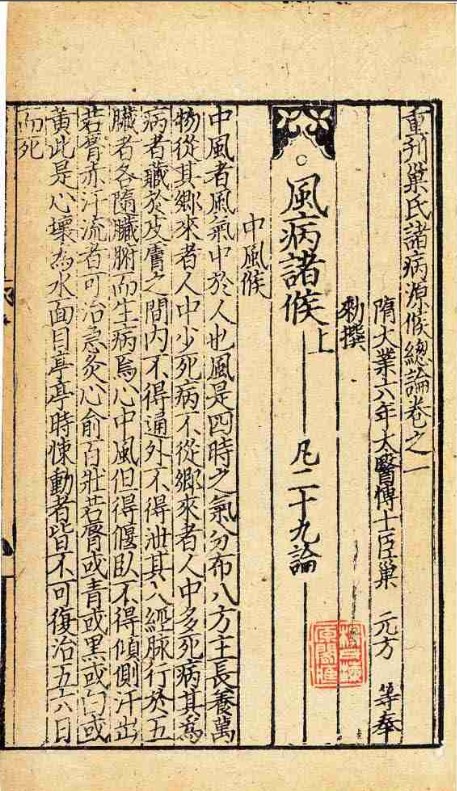 重刊巢氏諸病源候總論卷之一
隋大業六年太醫博士臣巢 元方 等奉
勑撰
風病諸候上 凡二十九論
中風候
中風者風氣中於人也風是四時之氣分布八方主長養萬
物從其鄉來者人中少死病不從鄉來者人中多死病其爲
病者藏於皮膚之間內不得通外不得泄其入經脉行於五
臟者各隨臟腑而生病焉心中風但得偃臥不得傾側汗出
若脣赤汗流者可治急灸心俞百壯若脣或青或黑或白或
黃此是心壞爲水面目亭亭時悚動者皆不可復治五六日
而死